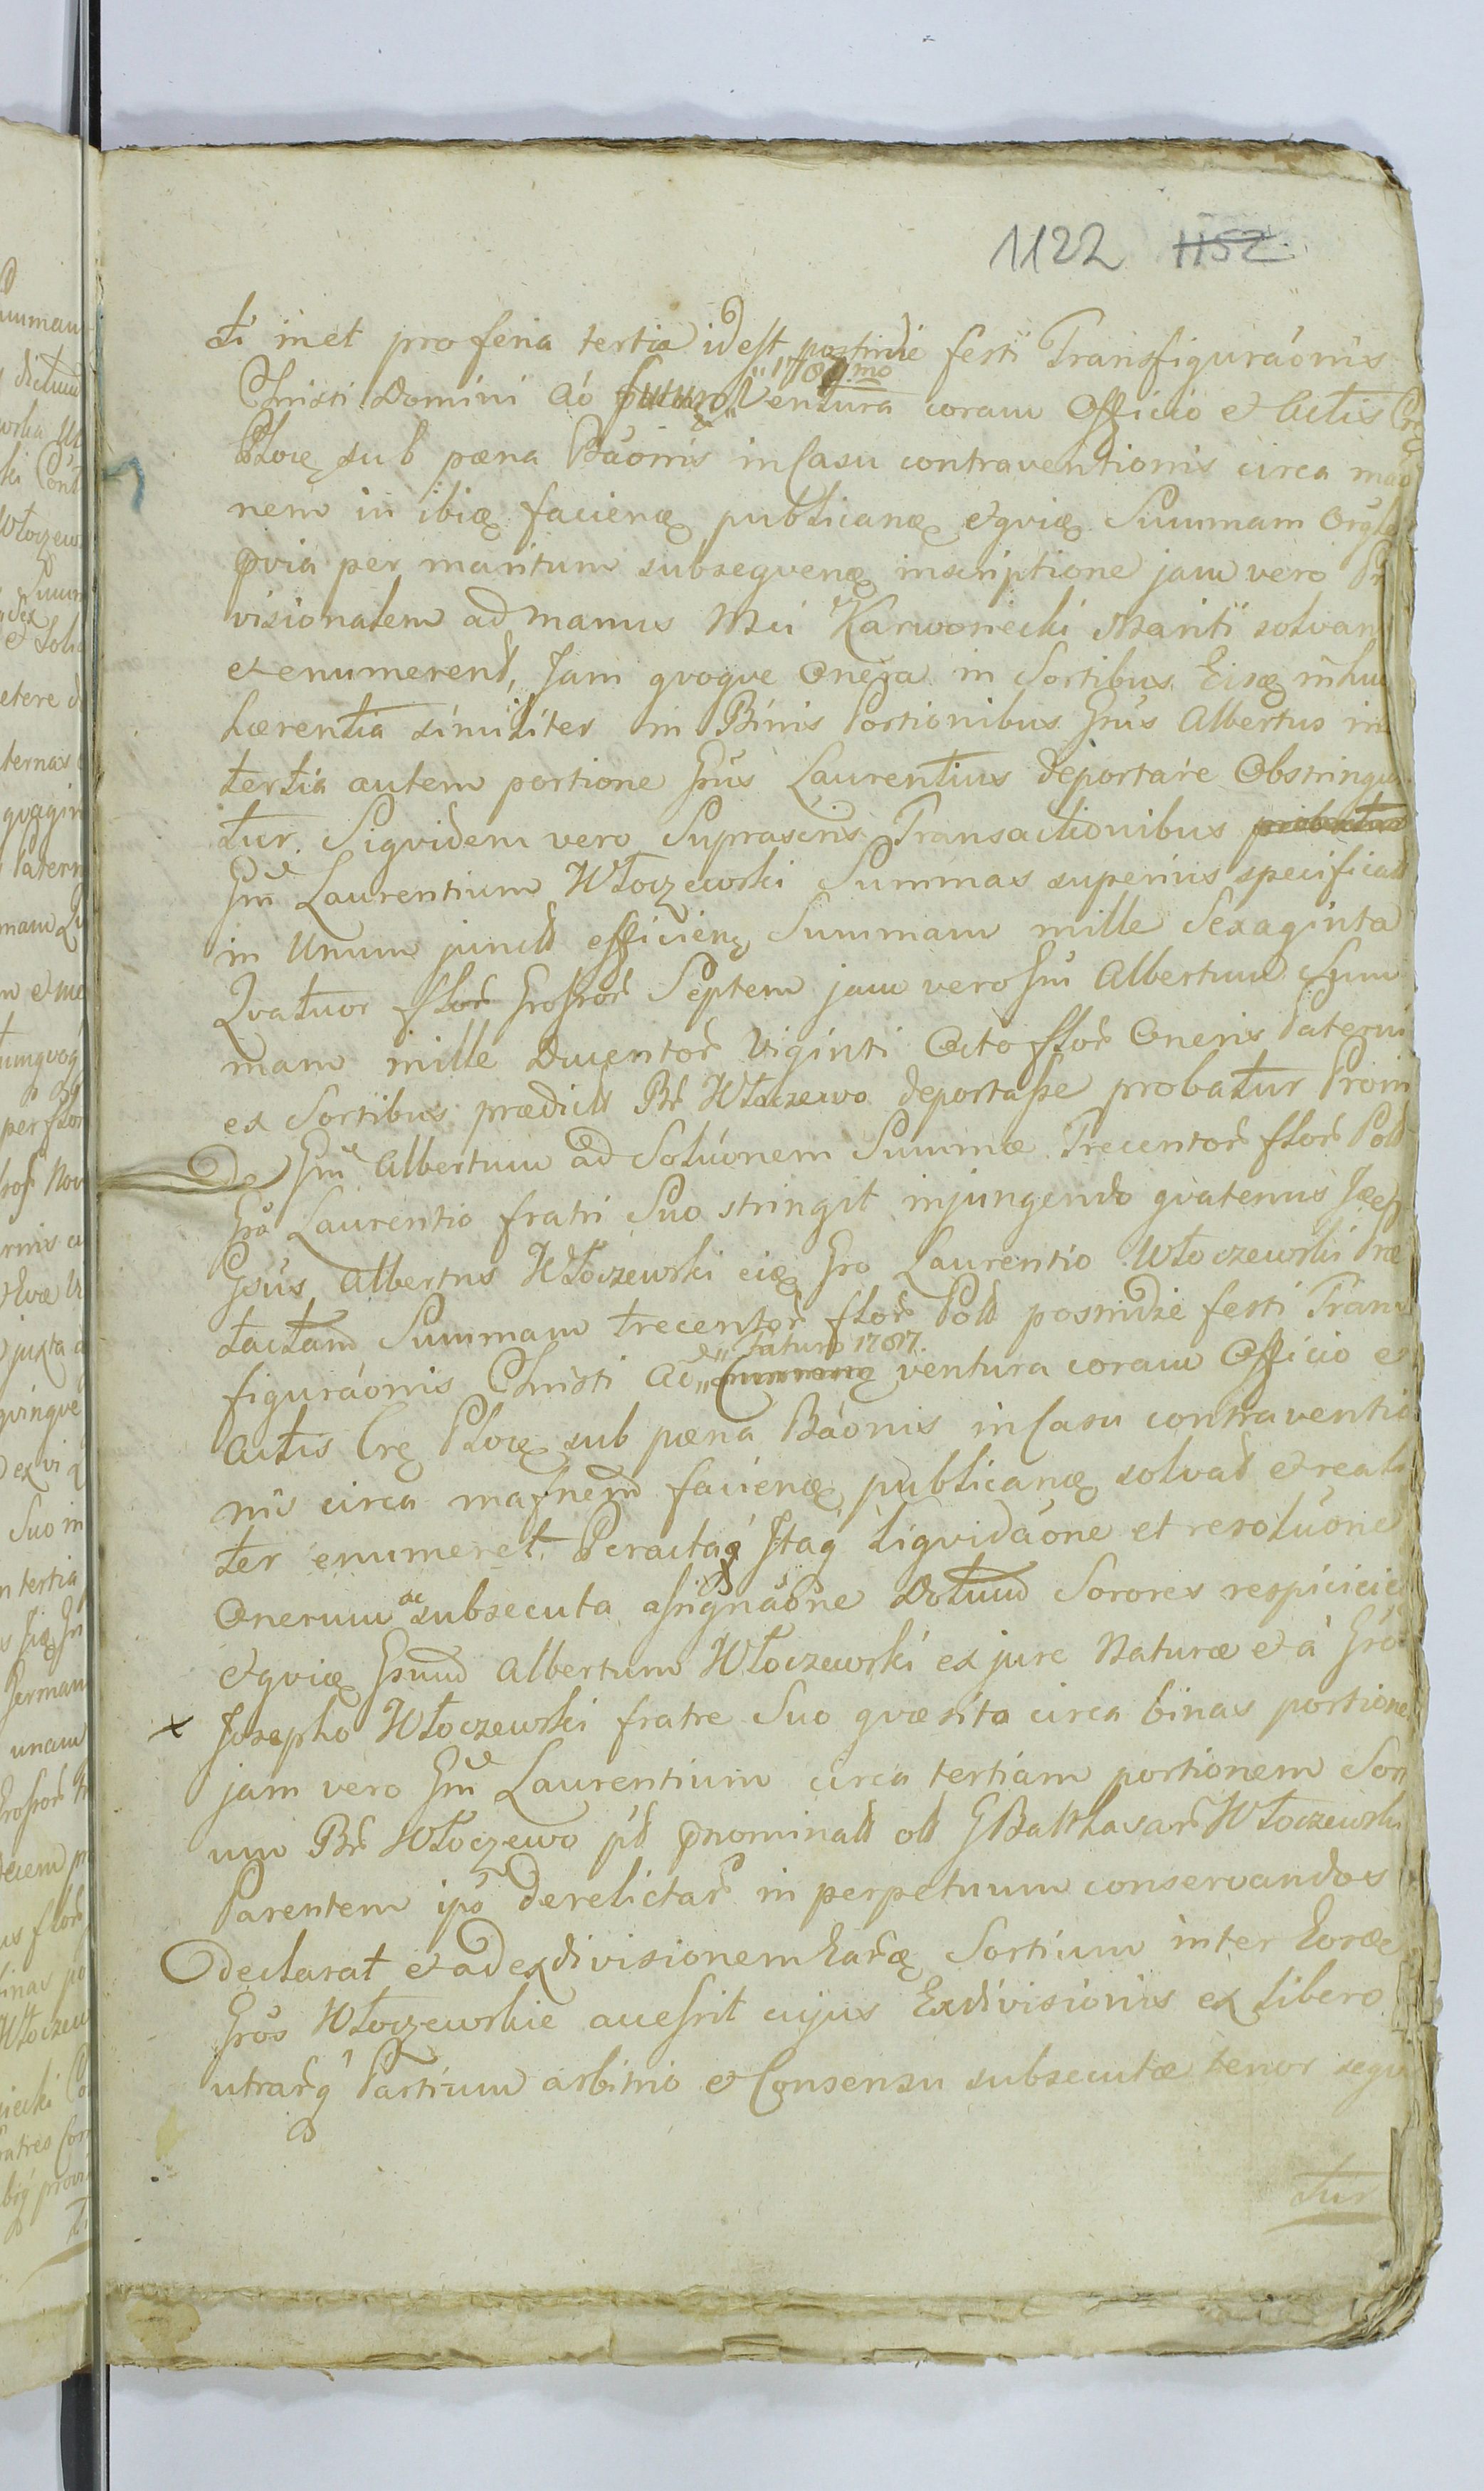 1122 1152
ti inet pro feria tertia idest postridie festi Transfiguraonis
"1787mo
Christi Domini Ao futuro Ventura coram Officio et Actis
Ploceę sub pœna Baonis in Casu contraventionis circa
nem in ibiq facienę publicanę eqvię Summam
qvia per maritum subseqvenę inscriptione jam vero
visionalem ad manus Mci Karwoniecki Mariti solvan
et enumerend, Jam qvoqve Onera in Sortibus Eisq
hærentia similiter in Binis Portionibus Grus Albertus in
tertia autem portione Grus Laurentius deportare Obstringu
tur. Siqvidem vero Suprascris Transactionibus
Grm Laurentium Włoczewski Summas superius specificatt
in Unum junctt efficienę Summam mille Sexaginta
Qvatuor flor Grossor Septem jam vero Grm Albertum Sum
mam mille Ducentor Viginti Octo flor Oneris Paterni
ex Sortibus prædictt Br Włoczewo deportasse probatur Proin
De Grm Albertum ad Soluonem Summæ Trecentor flor Poll
Gro Laurentio fratri Suo stringit injungendo qvatenus
Gsus Albertus Włoczewski eiq Gro Laurentio Włoczewski Præ
tactam Summam trecentor flor Poll postridie festi Trans
futuro 1787.
figuraonis Christi Ao ventura coram Officio et
Actis Crę Plocę sub pœna Baonis in Casu contraventio
nis circa mafnem facienę publicanę solvat et reali
ter enumeret. Peractaq Itaq liqvidaone et resoluone
Onerum ac subsecuta assignaone Dotum Sorores respicicie
eqvię Grum Albertum Włoczewski ex jure Naturæ et à Gro
x Josepho Włoczewski fratre Suo qvæsito circa binas portione
jam vero Grm Laurentium circa tertiam portionem Sorti
um Br Włoczewo pnominatt oll G Balthasar Włoczewski
Parentem ips derelictar in perpetuum conservandos
Declarat et ad exdivisionem Earq Sortium inter Eosde
Gros Włoczewskie accessit cujus Exdivisionis ex libero
utrarq Partium arbitrio et Consensu subsecutæ tenor seqvi
tur